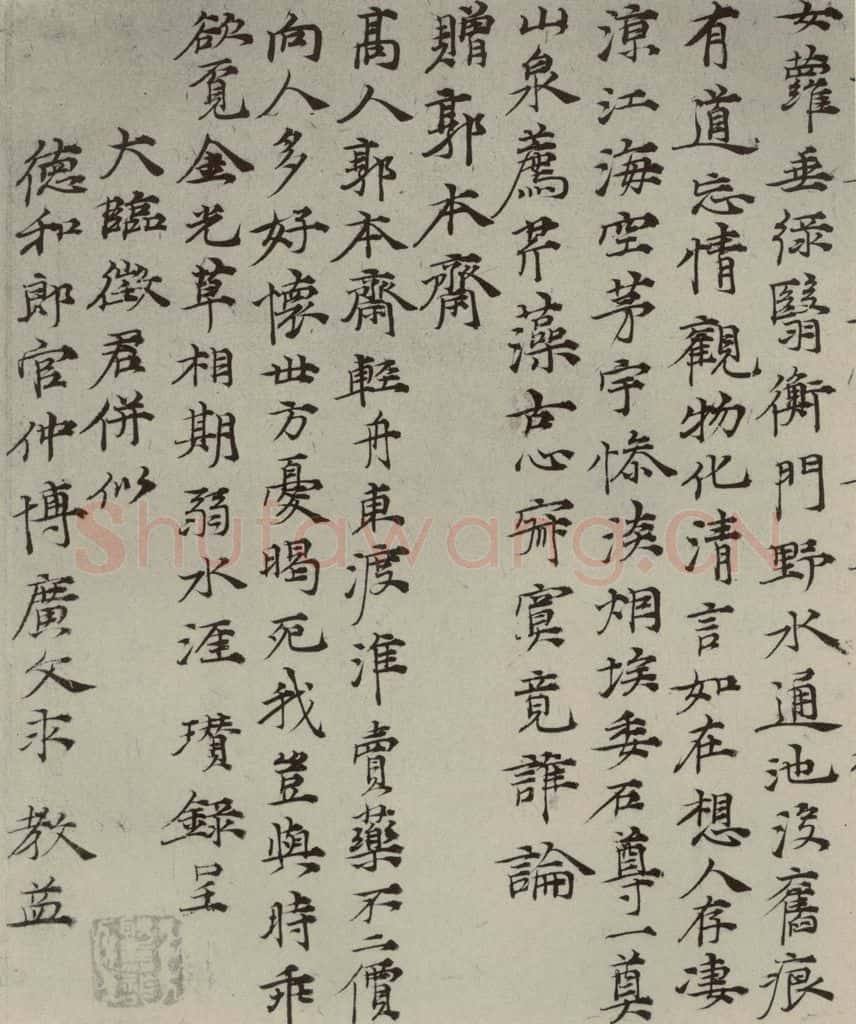 女蘿垂綠翳衡門野水通池沒舊痕
有道忘情觀物化清言如在想人存淒
涼江海空茅宇慘淡烟埃委石尊一奠
山泉薦芹藻古心寂寞竟誰論
贈郭本齋
高人郭本齋輕舟東渡淮賣藥不二價
向人多好懷世方憂暍死我豈與時乖
欲覓金光草相期弱水涯 瓚錄呈
大臨徵君併似
德和郎官仲博廣文求 教益
Shufawang.CN